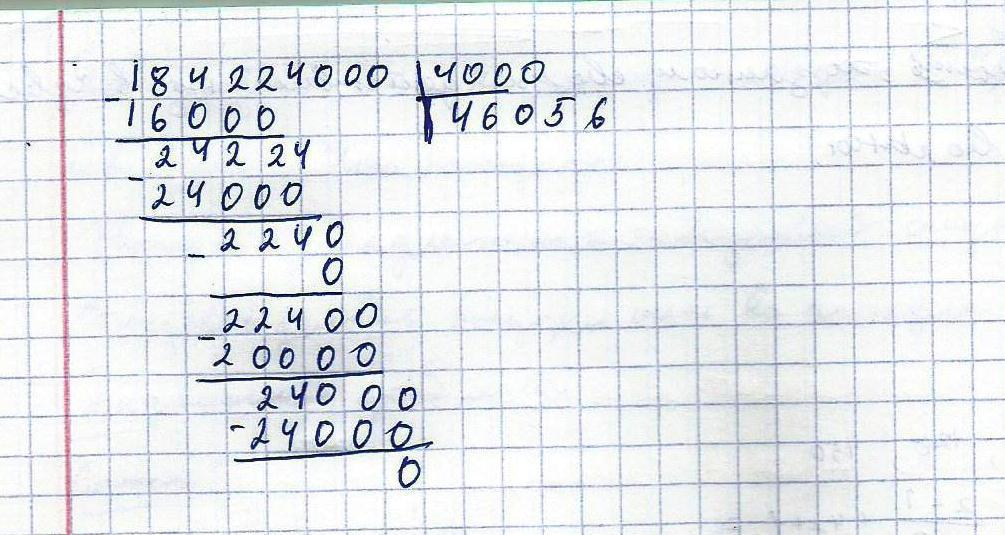 184224000 | 4000
- 16000 | 46056
24224
- 24000
2240
- 0
22400
- 20000
24000
- 24000
0